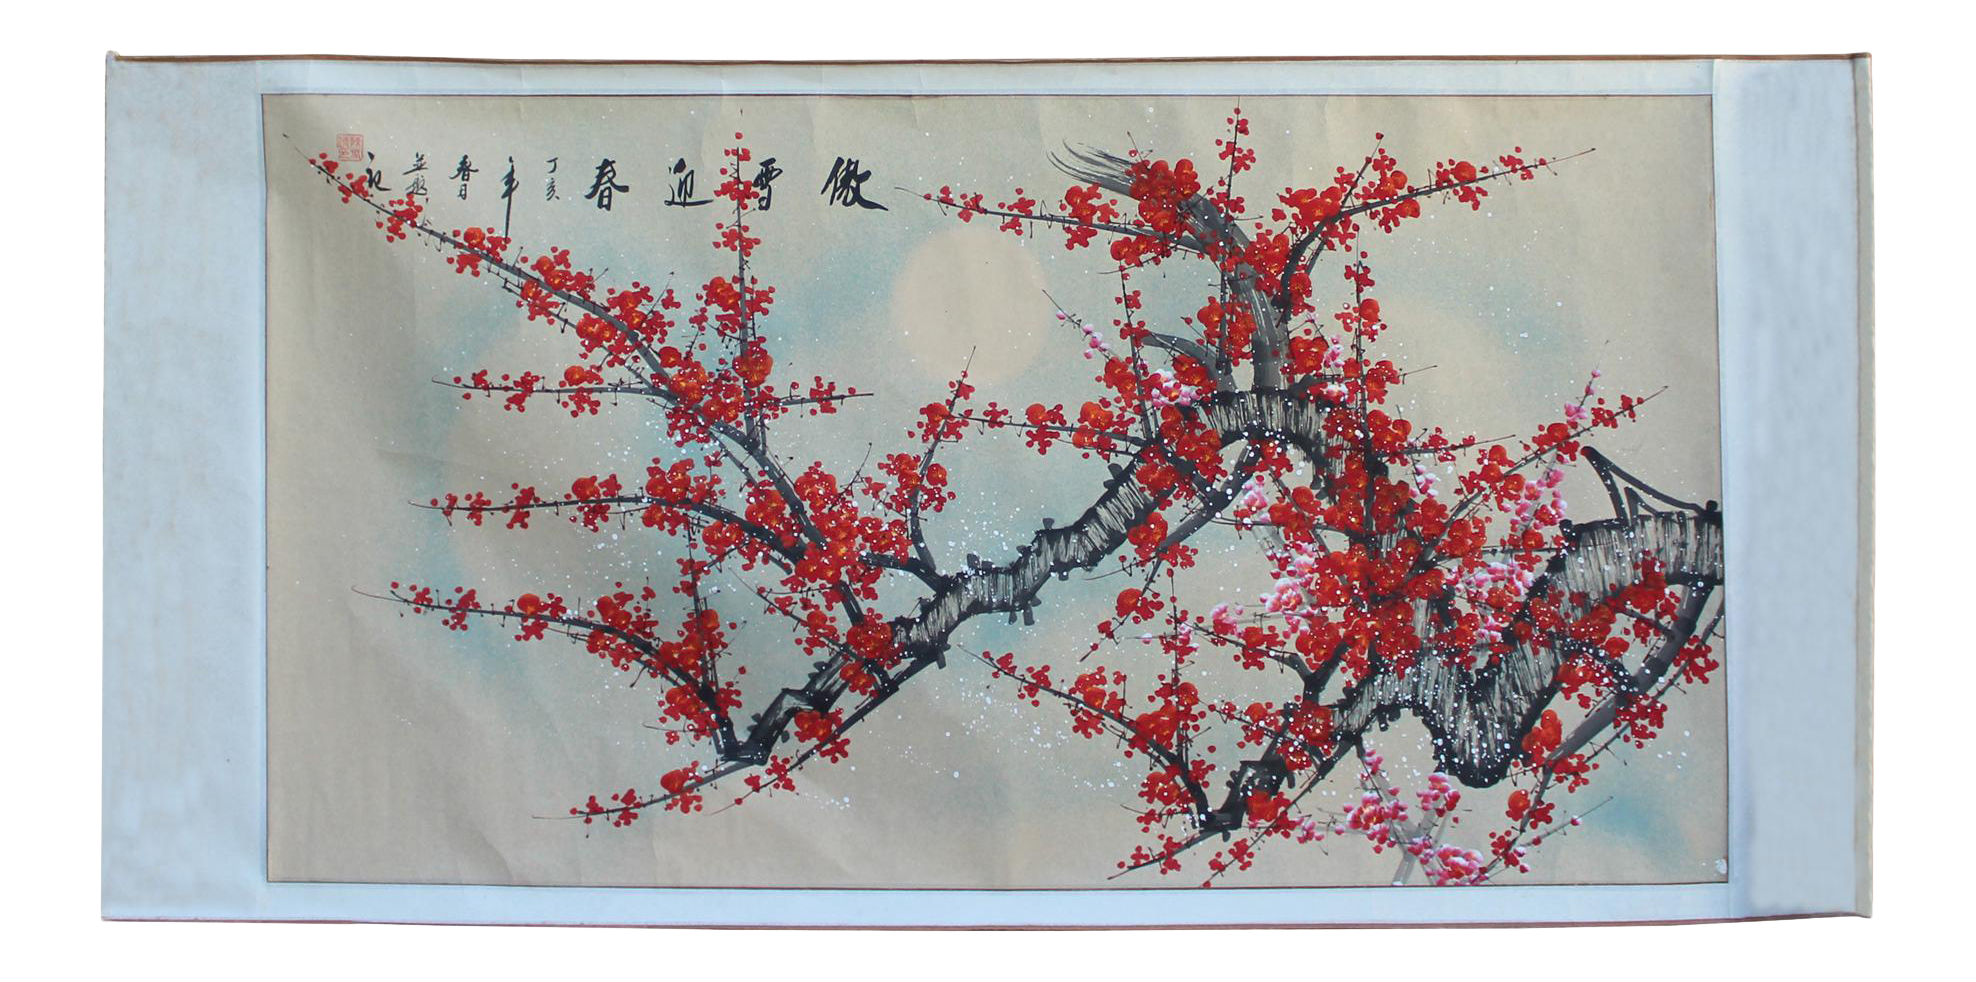 傲雪迎春 丁亥年春日並題記